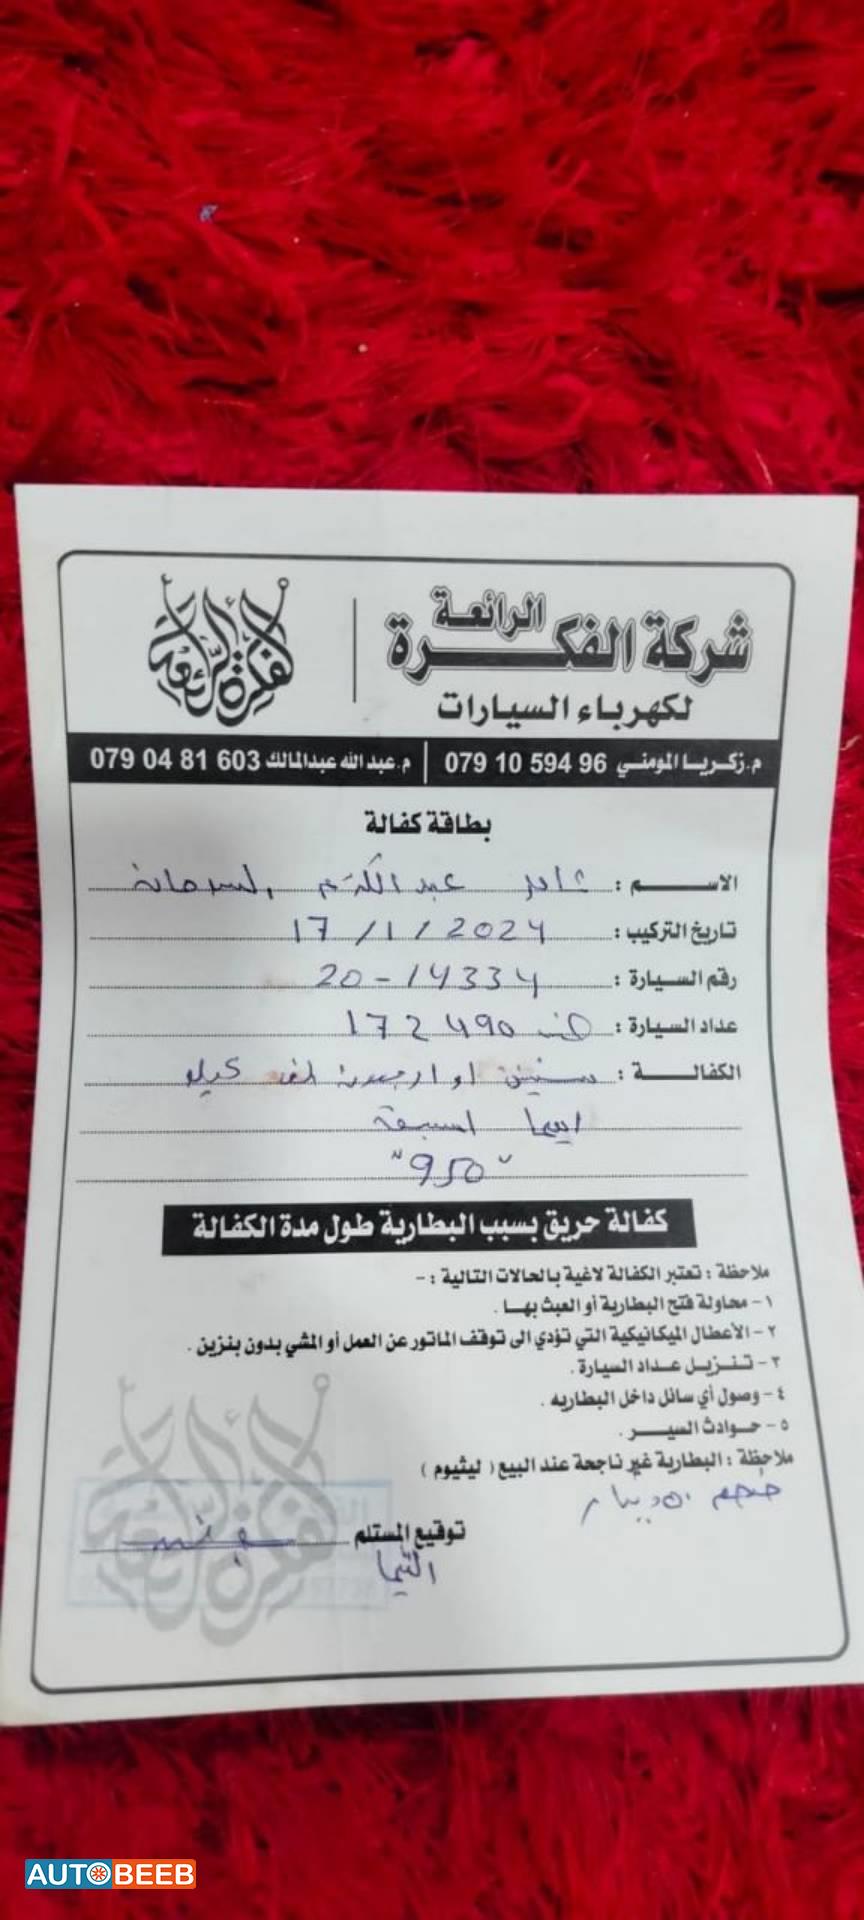 شركة الفكرة الرائعة
لكهرباء السيارات
الفكرة الرائعة
م.زكريا المومني 96 594 10 079 | م.عبدالله عبدالمالك 603 81 04 079
بطاقة كفالة
الاسم : ثامر عبد الكريم السرحان
تاريخ التركيب : 17/1/2024
رقم السيارة : 20-14334
عداد السيارة : 172490
الكفالة : سنتين او اربعون الف كيلو
ايهما اسبق
"950"
كفالة حريق بسبب البطارية طول مدة الكفالة
ملاحظة : تعتبر الكفالة لاغية بالحالات التالية :-
١- محاولة فتح البطارية أو العبث بها .
٢- الأعطال الميكانيكية التي تؤدي الى توقف الماتور عن العمل أو المشي بدون بنزين .
٣- تنزيل عداد السيارة .
٤- وصول أي سائل داخل البطاريه .
٥- حوادث السير .
ملاحظة : البطارية غير ناجحة عند البيع ( ليثيوم )
خصم دينار
توقيع المستلم
AUTOBEEB